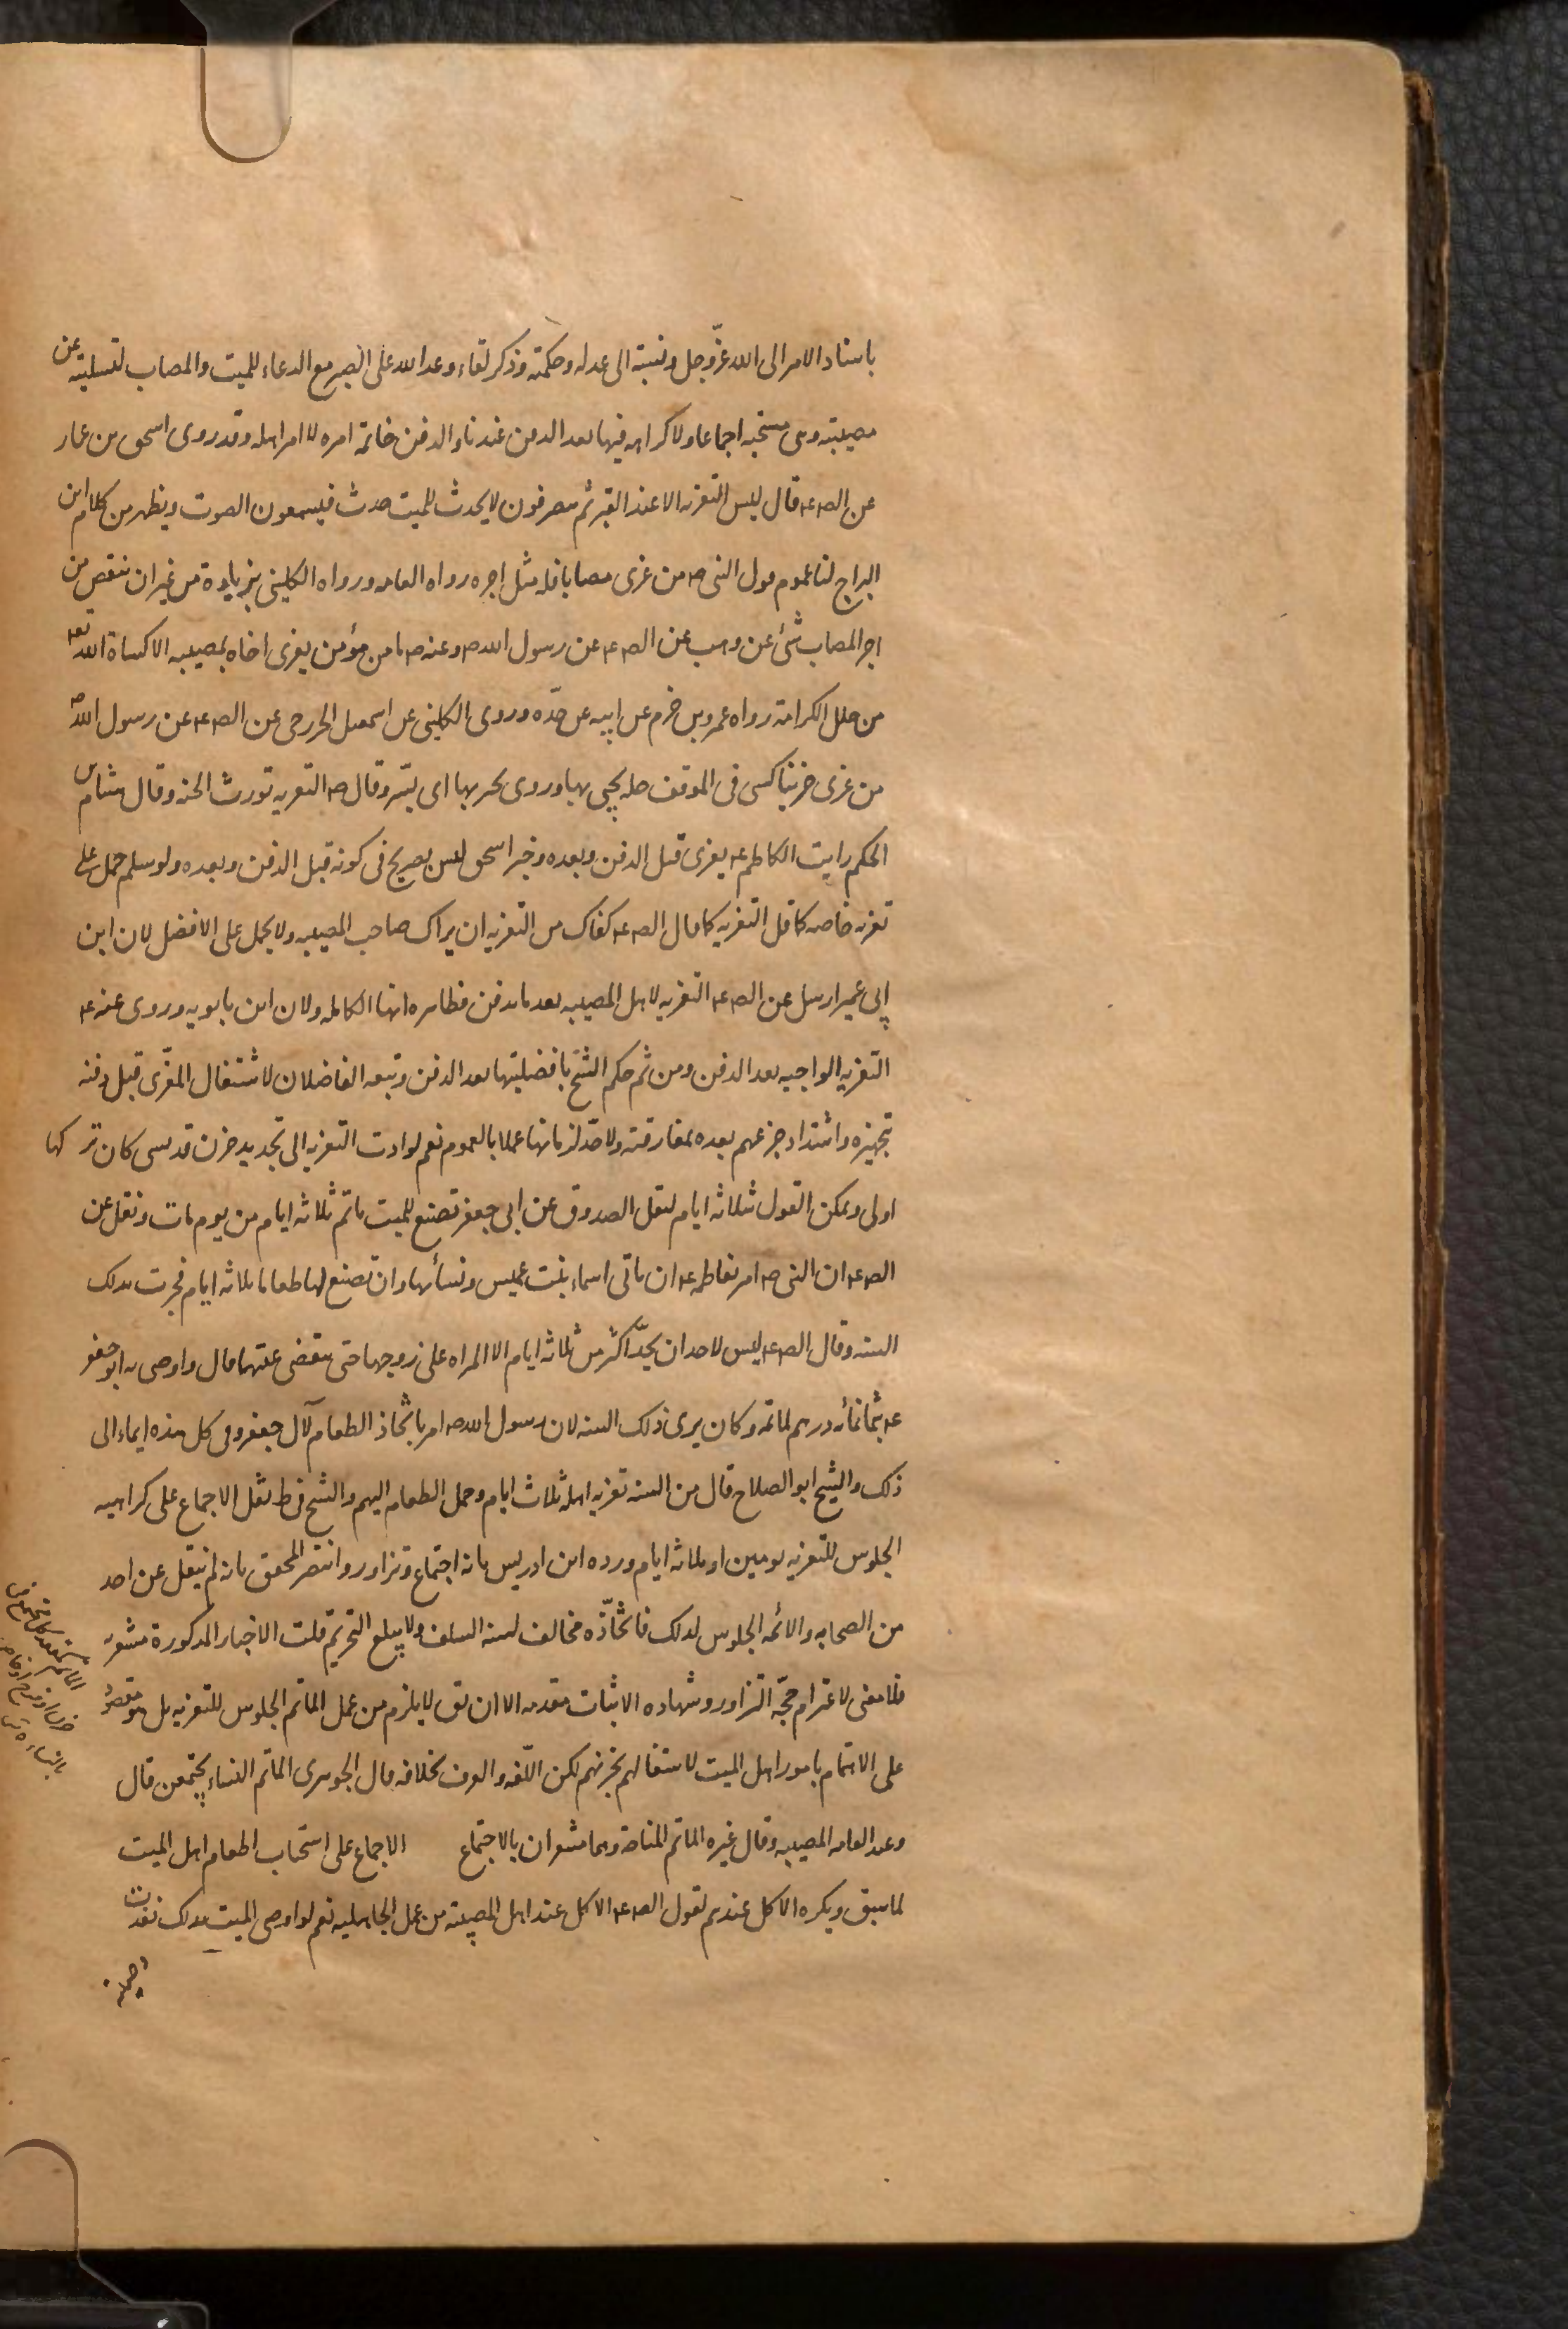 باسناد الامر الى الله عزّوجل ونسبته الى عدله وحكمته وذكر لقاء وعد الله على الصبر مع الدعاء للميت والمصاب لتسليته عن
مصيبته وهى مستحبه اجماعا ولا كراهه فيها بعد الدفن عندنا والدفن خاتمة امره لا امر اهله وقد روى اسحق بن عمار
عن الص ع قال ليس التعزيه الا عند القبر ثم ينصرفون لا يحدث للميت حدث فيسمعون الصوت ويظهر من كلام ابن
البراج لنا عموم قول النبى ص من عزى مصابا فله مثل اجره رواه العامه ورواه الكلينى بزيادة من غير ان ينقص من
اجر المصاب شئ عن وهب عن الص ع عن رسول الله ص وعنه ص ما من مؤمن يعزى اخاه بمصيبه الا كساه الله تعه
من حلل الكرامة رواه عمرو بن حزم عن ابيه عن جدّه وروى الكلينى عن اسمعيل الجزرى عن الص ع عن رسول الله ص
من عزى حزينا كسى فى الموقف حله يحبى بها وروى يحبر بها اى يسّر وقال ص التعزيه تورث الجنه وقال هشام بن
الحكم رايت الكاظم ع يعزى قبل الدفن وبعده وخبر اسحق ليس بصريح فى كونه قبل الدفن وبعده ولو سلم حمل على
تعزيه خاصه كاقل التعزيه كما قال الص ع كفاك من التعزيه ان يراك صاحب المصيبه ولا يحمل على الافضل لان ابن
ابى عمير ارسل عن الص ع التعزيه لاهل المصيبه بعد ما يدفن فظاهره انها الكامله ولان ابن بابويه وروى عنه ع
التعزيه الواجبه بعد الدفن ومن ثم حكم الشيخ بافضليتها بعد الدفن وتبعه الفاضلان لاشتغال المعزّى قبل دفنه
تجهيزه واشتداد جزعهم بعده بمفارقته ولا حدّ لزمانها عملا بالعموم نعم لو ادت التعزيه الى تجديد حزن قد نسى كان تركها
اولى ويمكن القول بثلاثه ايام لنقل الصدوق عن ابى جعفر تصنع للميت ماتم ثلاثه ايام من يوم مات ونقل عن
الص ع ان النبى ص امر بفاطمه ع ان تاتى اسماء بنت عميس ونسائها وان تصنع لها طعاما ثلاثه ايام فجرت بذلك
السنه وقال الص ع ليس لاحد ان يحدّ اكثر من ثلاثه ايام الا المراه على زوجها حتى تنقضى عدتها قال واوصى به ابو جعفر
ع بثمانمائه درهم لماتمه وكان يرى ذلك السنه لان رسول الله ص امر باتخاذ الطعام لآل جعفر وفى كل هذه ايماء الى
ذلك والشيخ ابو الصلاح قال من السنه تعزيه اهله ثلاث ايام وحمل الطعام اليهم والشيخ فى ط نقل الاجماع على كراهيه
الجلوس للتعزيه يومين او ثلاثه ايام ورده ابن ادريس بانه اجتماع وتزاور وانتصر المحقق بانه لم ينقل عن احد
من الصحابه والائمه الجلوس لذلك فاتخاذه مخالف لسنه السلف ولا يبلغ التحريم قلت الاخبار المذكورة مشعرة
فلا معنى لاغترام حجّة التزاور وشهاده الاثبات مقدمه الا ان يق لا يلزم من عمل الماتم الجلوس للتعزيه بل هو مقصور
على الاهتمام بامور اهل الميت لاشتغالهم بحزنهم لكن اللّغه والعرف بخلافه قال الجوهرى الماتم النساء يجتمعن قال
وعند العامه المصيبه وقال غيره الماتم المناحة وهما مشعران بالاجتماع الاجماع على استحباب اطعام اهل الميت
لما سبق ويكره الاكل عندهم لقول الص ع الاكل عند اهل المصيبة من عمل الجاهليه نعم لو اوصى الميت بذلك نفذت